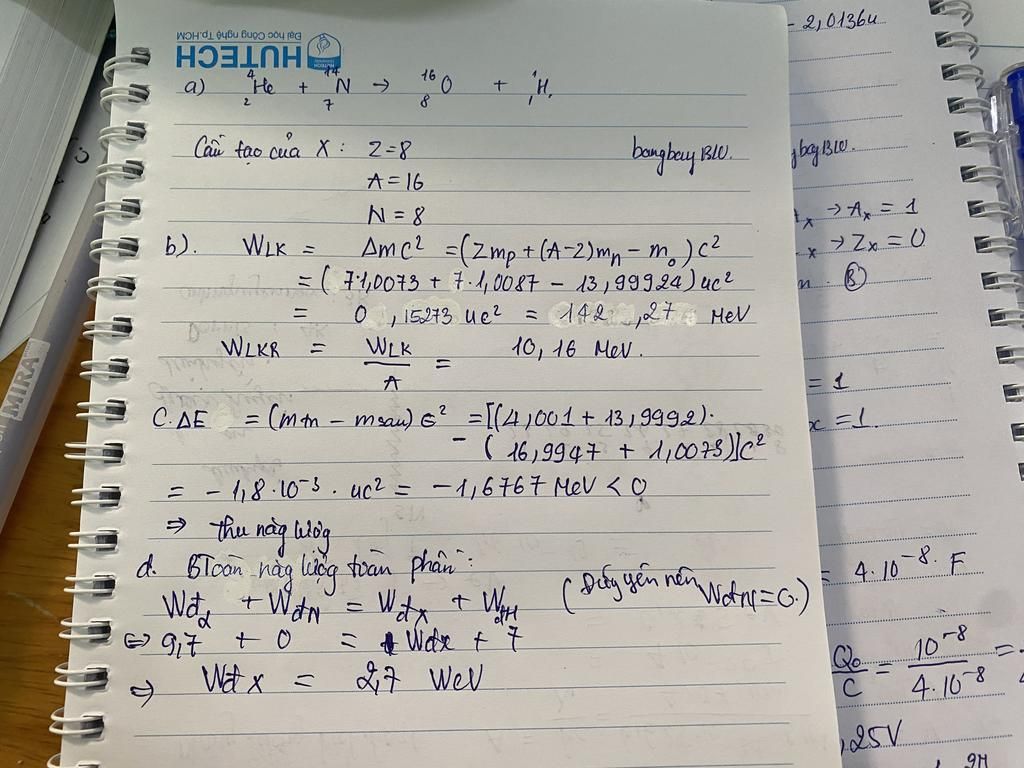 HUTECH
Đại học Công nghệ Tp.HCM
a) ⁴₂He + ¹⁴₇N → ¹⁶₈O + ¹₁H,
Cấu tạo của X: Z=8
bangbay BLU.
A=16
N=8
b). WLK = Δmc² =(Zmp+(A-2)mn - mo)c²
=( 7.1,0073 + 7.1,0087 - 13,99924)uc²
= 0,15273 uc² = 142,27 MeV
WLKR = WLK/A = 10,16 MeV.
C. ΔE = (mtn - msau) c² =[(4,001 + 13,9992).
- (16,9947 + 1,0073)]c²
= -1,8.10⁻³. uc² = -1,6767 MeV < 0
⇒ thu năg lượg
d. BToàn năg lượg toàn phần:
Wđα + WđN = WđX + WđH
(Đứg yên nên WđN=0.)
⇔ 9,7 + 0 = Wđx + 7
⇒ Wđ X = 2,7 WeV
MIRA
- 2,0136u
bay BLU.
x → Ax = 1
x → Zx = 0
n. Ⓑ
= 1
x = 1.
= 4.10⁻⁸. F
Qo/C = 10⁻⁸/4.10⁻⁸ =
,25V